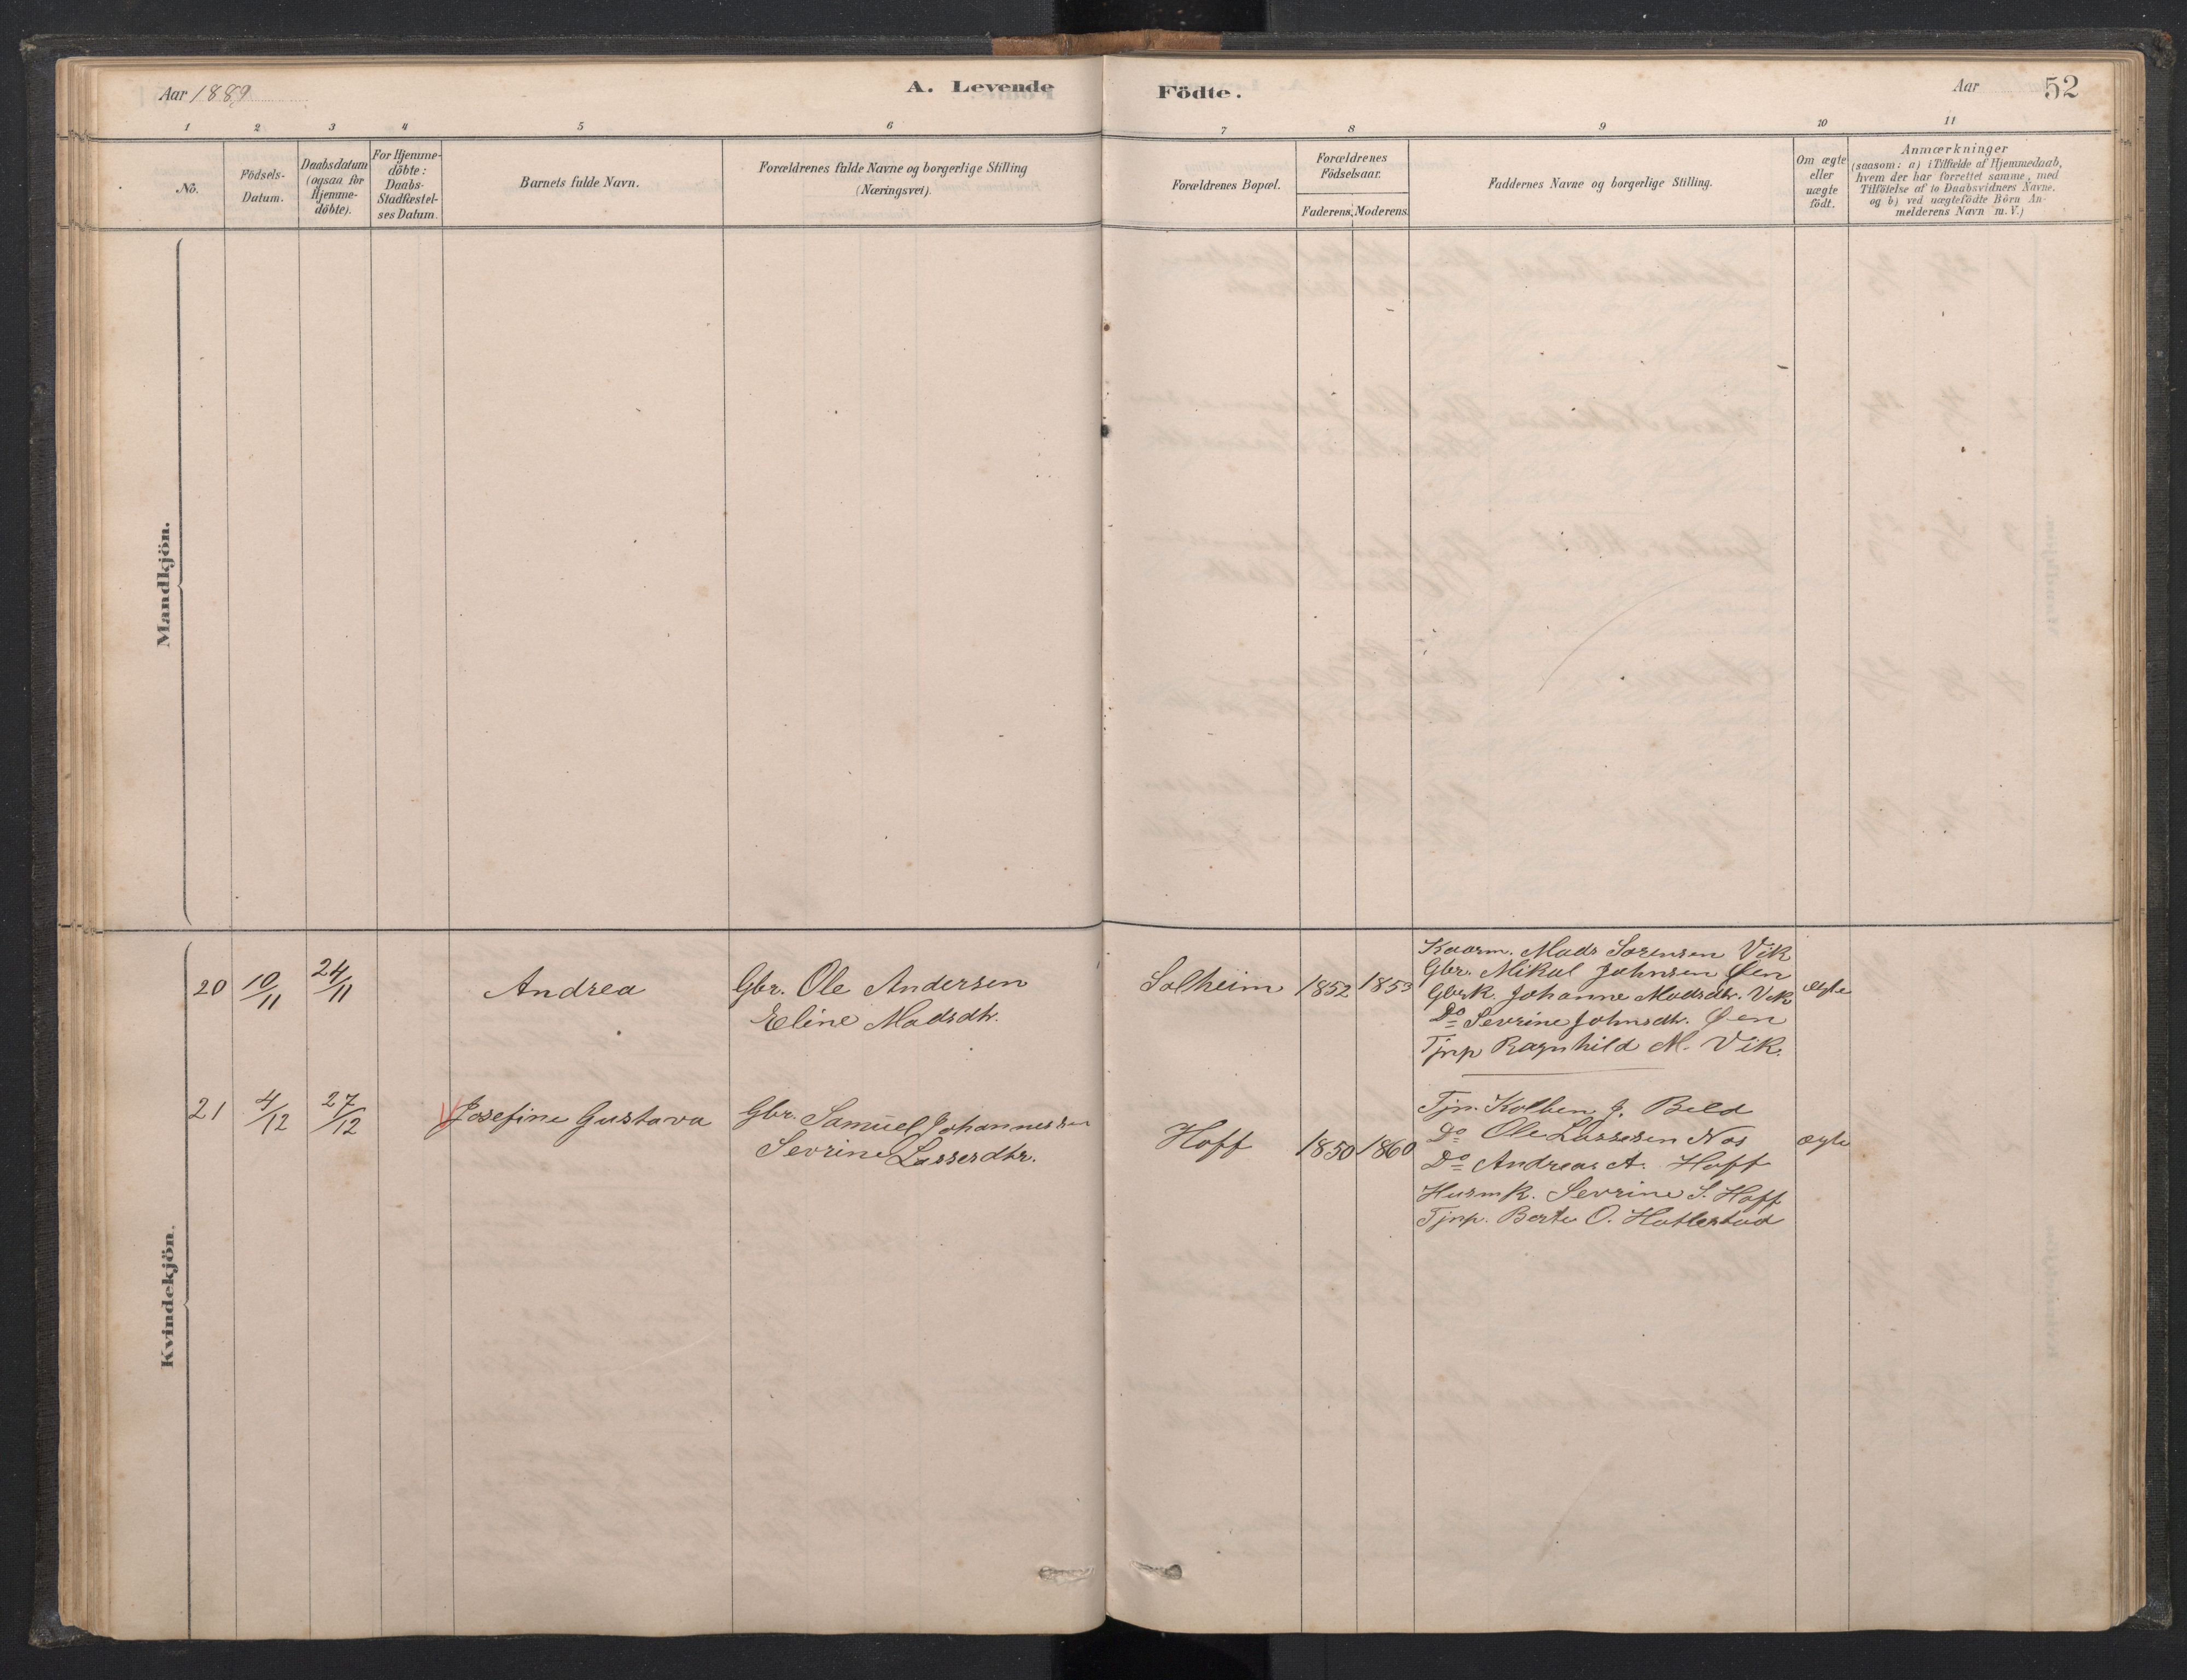 Aar 1889
A. Levende
Födte.
Aar
52
1 2 3 4 5 6 7 8 9 10 11
No.
Födsels-
Datum.
Daabsdatum
(ogsaa for
Hjemme-
döbte).
For Hjemme-
döbte:
Daabs-
Stadfæstel-
ses Datum.
Barnets fulde Navn.
Forældrenes fulde Navne og borgerlige Stilling
(Næringsvei).
Forældrenes Bopæl.
Forældrenes
Födselsaar.
Faderens. Moderens.
Faddernes Navne og borgerlige Stilling.
Om ægte
eller
uægte
födt.
Anmærkninger
(saasom: a) i Tilfælde af Hjemmedaab,
hvem der har forrettet samme, med
Tilföielse af to Daabsvidners Navne.
og b) ved uægtefödte Börn An-
melderens Navn m. V.)
Mandkjön.
Kvindekjön.
20 10/11 24/11 Andrea
Gbr. Ole Andersen
Eline Madsdtr.
Solheim 1852 1853
Kaarm. Mads Sørensen Vik
Gbr. Mikal Johnsen Øen
Gbrk. Johanne Madsdtr. Vik
Do Sevrine Johnsdtr. Øen
Tjnp Ragnhild M. Vik.
ægte
21 4/12 27/12 Josefine Gustava
Gbr. Samuel Johannessen
Sevrine Lassesdtr.
Hoff 1850 1860
Tjn. Kolben J. Beld
Do Ole Lassesen Nos
Do Andreas A. Hoff
Husmk. Sevrine S. Hoff
Tjnp. Berte O. Hatlestad
ægte